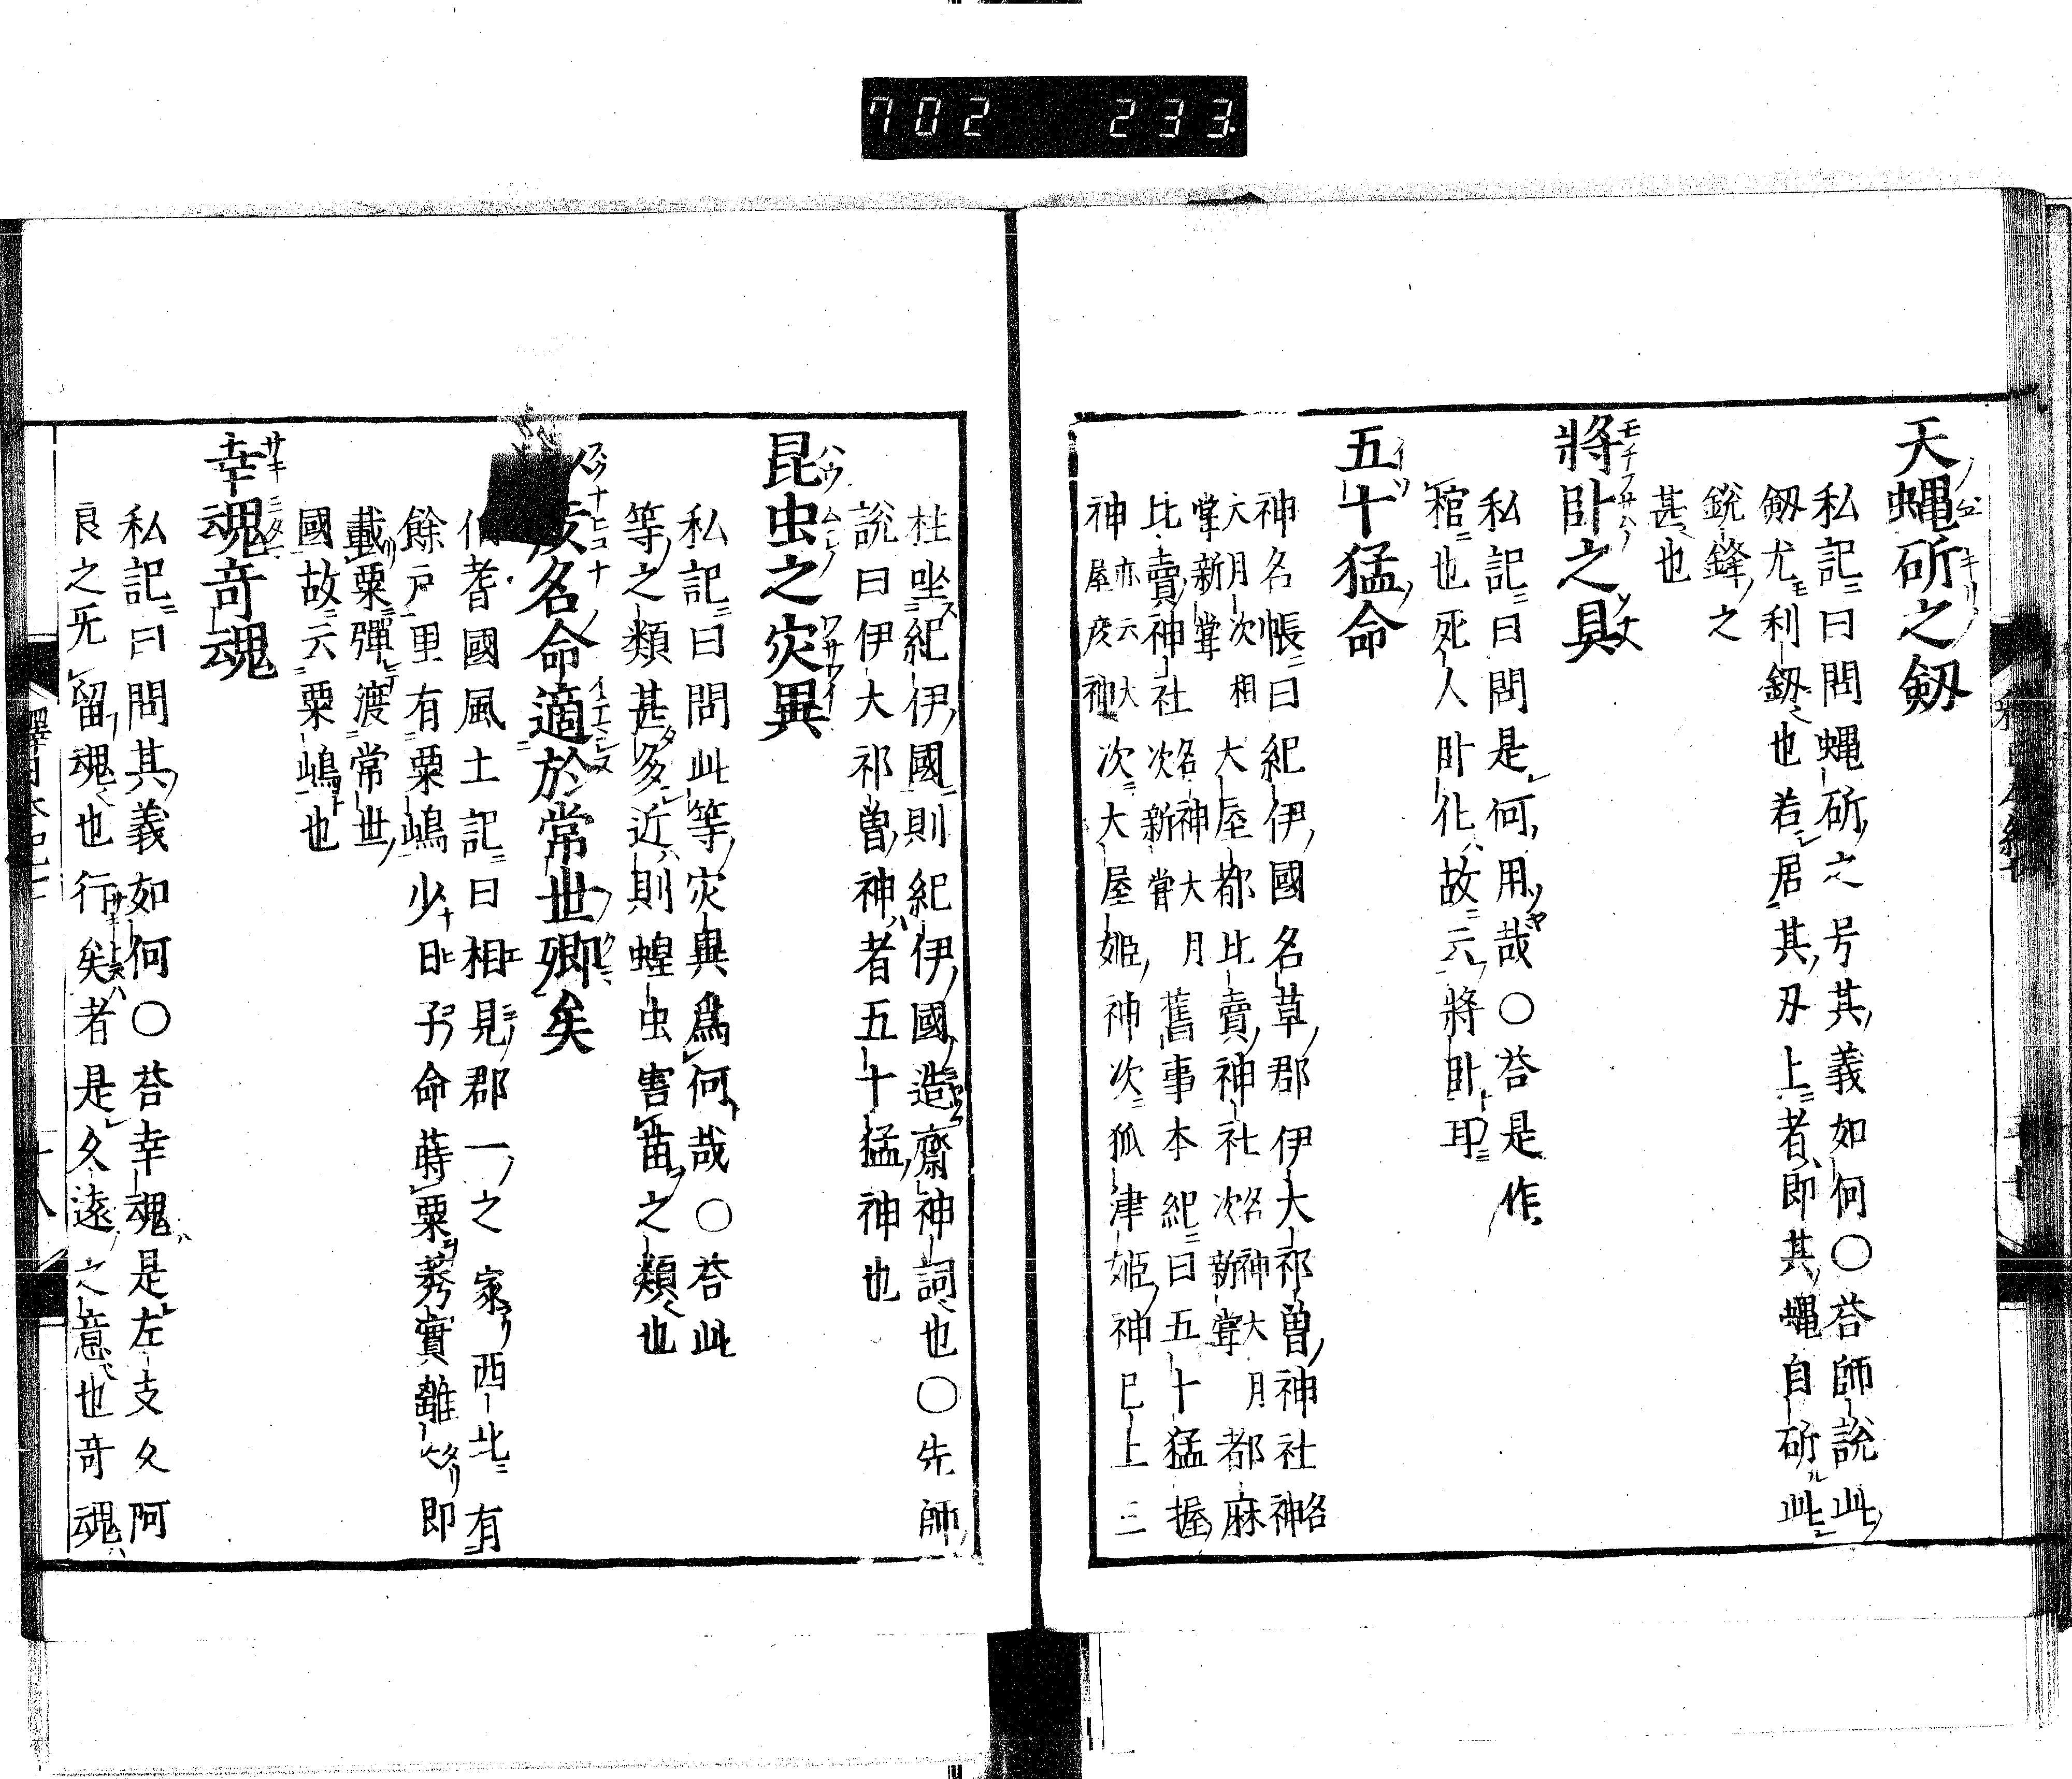 702 233
天蠅斫之劔
私記曰問蠅斫之号其義如何〇荅師說此
劔尤利劔也若居其刃上者即其蠅自斫此
銳鋒之
甚也
將卧之具
私記曰問是何用哉〇荅是作
棺也死人卧化故云將卧耳
五十猛命
神名帳曰紀伊國名草郡伊大祁曽神社名神
大月次相新甞大屋都比賣神社名神大月次新甞都麻
比賣神社名神大月次新甞舊事本紀曰五十猛握
神亦云大屋彦神次大屋姬神次狐津姬神已上三
柱坐紀伊國則紀伊國造齋神詞也〇先師
說曰伊大祁曽神者五十猛神也
昆虫之灾異
私記曰問此等灾異爲何哉〇荅此
等之類甚多近則蝗虫害苗之類也
彦名命適於常世鄉矣
伯耆國風土記曰相見郡一之家西北有
餘戸里有粟嶋少日子命蒔粟莠實離々即
載粟彈渡常世
國故云粟嶋也
幸魂竒魂
私記曰問其義如何〇荅幸魂是左支久阿
良之无留魂也行矣者是久遠之意也竒魂
釋日本紀七
十八